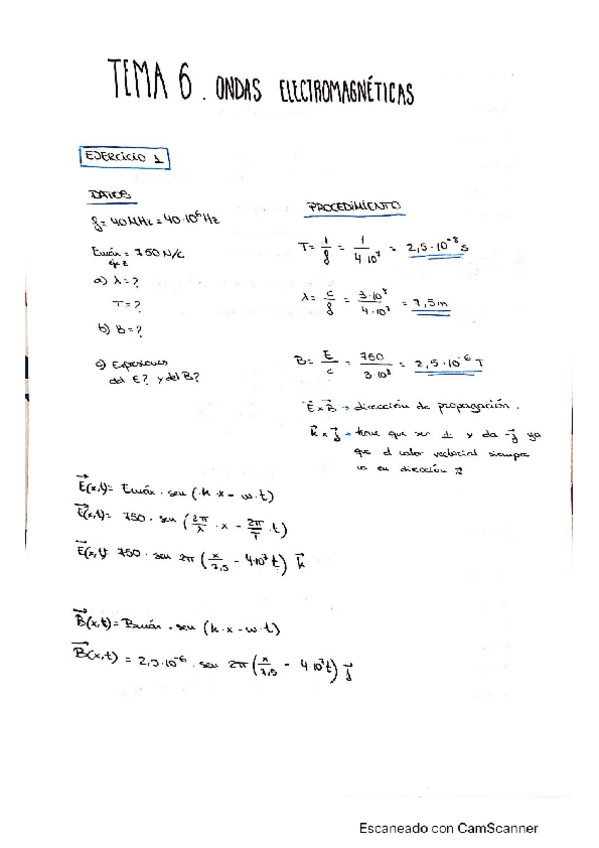 TEMA 6. ONDAS ELECTROMAGNÉTICAS
EJERCICIO 1
DATOS
f = 40 MHz = 40·10⁶ Hz
Emáx = 750 N/C
eje z
a) λ = ?
T = ?
b) B = ?
c) Expresiones
del E? y del B?
PROCEDIMIENTO
T = 1/f = 1/4·10⁷ = 2,5·10⁻⁸ s
λ = c/f = 3·10⁸/4·10⁷ = 7,5 m
B = E/c = 750/3·10⁸ = 2,5·10⁻⁶ T
E⃗ x B⃗ → dirección de propagación.
k⃗ x j⃗ → tiene que ser ⊥ y da -j ya
que el valor vectorial siempre
va en dirección
E⃗(x,t) = Emáx · sen (k·x - w·t)
E⃗(x,t) = 750 · sen (2π/λ · x - 2π/T · t)
E⃗(x,t) 750 · sen 2π (x/7,5 - 4·10⁷t) k⃗
B⃗(x,t) = Bmáx · sen (k·x - w·t)
B⃗(x,t) = 2,5·10⁻⁶ · sen 2π (x/7,5 - 4·10⁷t) j⃗
Escaneado con CamScanner